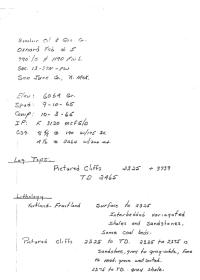 Sinclair Oil & Gas Co.
Oxnard Fed. # 5
990'/S & 1190 FWL
Sec. 13-27N-8W
San Juan Co., N. Mex.
Elev: 6069 Gr.
Spud: 9-10-65
Comp: 10-3-65
IP: F 3120 MCFG/D
Csg. 8 5/8 @ 120 w/
@ 2464 w/
Log Tops
Pictured Cliffs 2325 + 3739
TD 2465
Lithology
Kirtland-Fruitland Surface to 2325
Interbedded variegated
shales and sandstones.
Some coal beds.
Pictured Cliffs 2325 to TD. 2325 to 2375 is
Sandstone, grey to grey-white, fine
to med. grain, well sorted.
2375 to TD. grey shale.